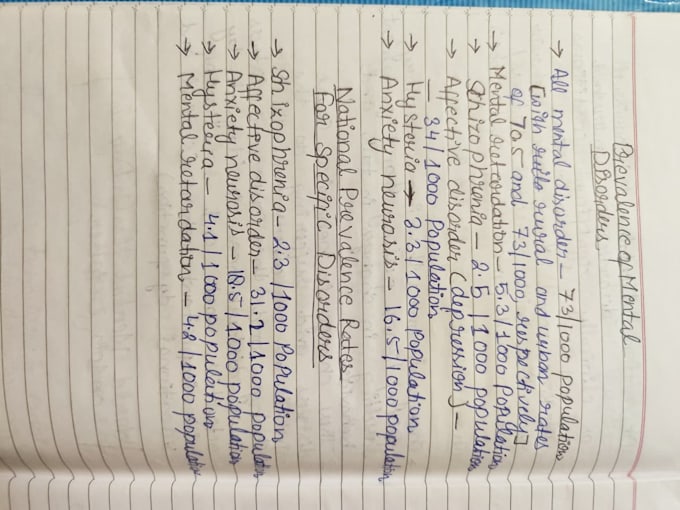 Prevalence of Mental
Disorders
→ All mental disorder – 73/1000 population
[with rural and urban rates
of 70.5 and 73/1000, respectively]
→ Mental retardation – 5.3/1000 population
→ Shizophrenia – 2.5/1000 population
→ Affective disorder (depression) –
– 34/1000 population
→ Hysteria → 3.3/1000 population
→ Anxiety neurosis – 16.5/1000 population
National Prevalence Rates
For Specific Disorders
→ Shizophrenia – 2.3/1000 population
→ Affective disorder – 31.2/1000 population
→ Anxiety neurosis – 18.5/1000 population
→ Hysteria – 4.1/1000 population
→ Mental retardation – 4.2/1000 population